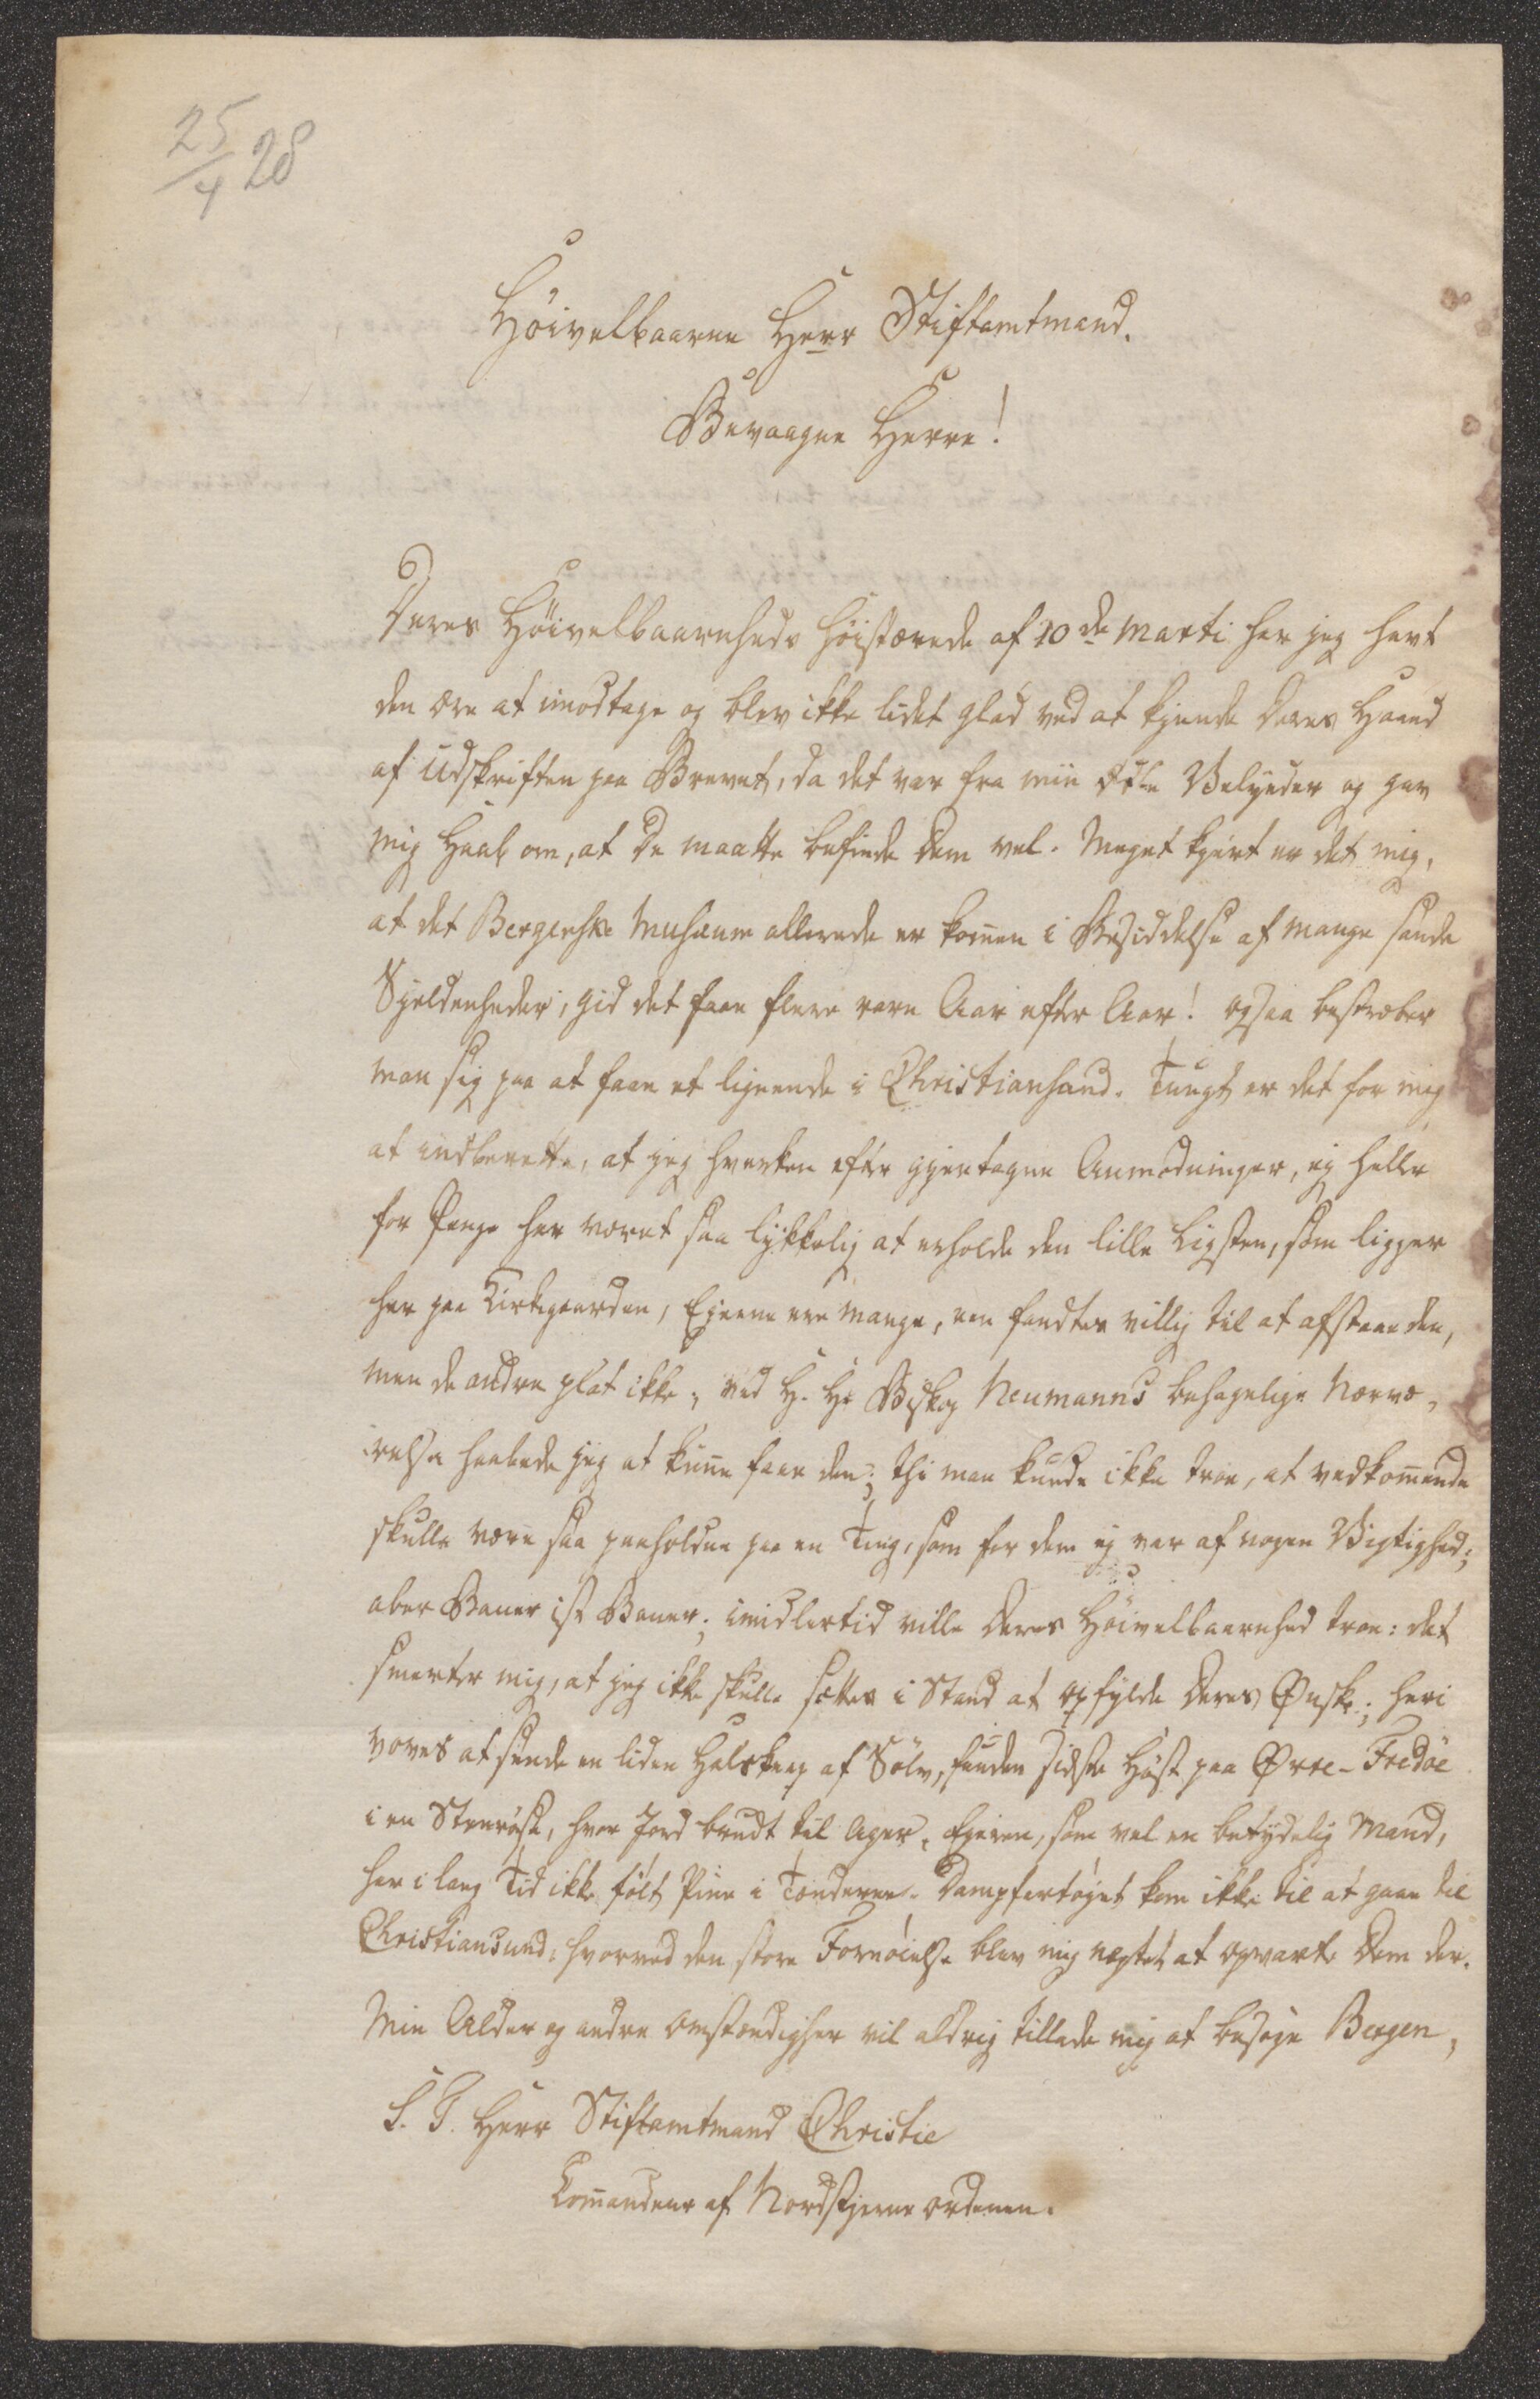 25/4 28
Höivelbaarne Herr Stiftamtmand.
Bevaagne Herre!
Deres Höivelbaarnheds höistærede af 10de Marti har jeg havt
den ære at imodtage og blev ikke lidet glad ved at kjende Deres Haand
af Udskriften paa Brevet, da det var fra min ædle Velynder og gav
mig Haab om, at De maatte befinde Dem vel. Meget kjært er det mig,
at det Bergenske Musæum allerede er kommen i Besiddelse af mange sande
Sjeldenheder, gid det faae flere rare Aar efter Aar! ogsaa bestræber
man sig paa at faae et lignende i Christiansand. Tungt er det for mig
at indberette, at jeg hverken efter gjentagne Anmodninger, ej heller
for Penge har været saa lykkelig at erholde den lille Ligsten, som ligger
her paa Kirkegaarden, Ejerne ere mange, een fandtes villig til at afstaae den,
men de andre plat ikke; ved H. Hr Biskop Neumanns behagelige Nærvæ-
relse haabede jeg at kunne faae den; thi man kunde ikke troe, at vedkommende
skulle være saa paaholdne paa en Ting, som for dem ej var af nogen Vigtighed;
aber Bauer ist Bauer; imidlertid ville Deres Höivelbaarnhed troe: det
smerter mig, at jeg ikke skulle sættes i Stand at opfylde Deres Ønske; heri
voves at sende en liden Halsknap af Sölv, funden sidste Høst paa Øvre-Fredöe
i en Steenröse, hvor Jord brudt til Ager. Ejeren, som vel en betydelig Mand,
har i lang Tid ikke fölt Pine i Tænderne. Dampfartöjet kom ikke til at gaae til
Christiansund, hvorved den store Fornöielse blev mig nægtet at opvarte Dem der.
Min Alder og andre Omstændigher vil aldrig tillade mig at besöge Bergen,
S. T. Herr Stiftamtmand Christie
Commandeur af Nordstjerne Ordenen.